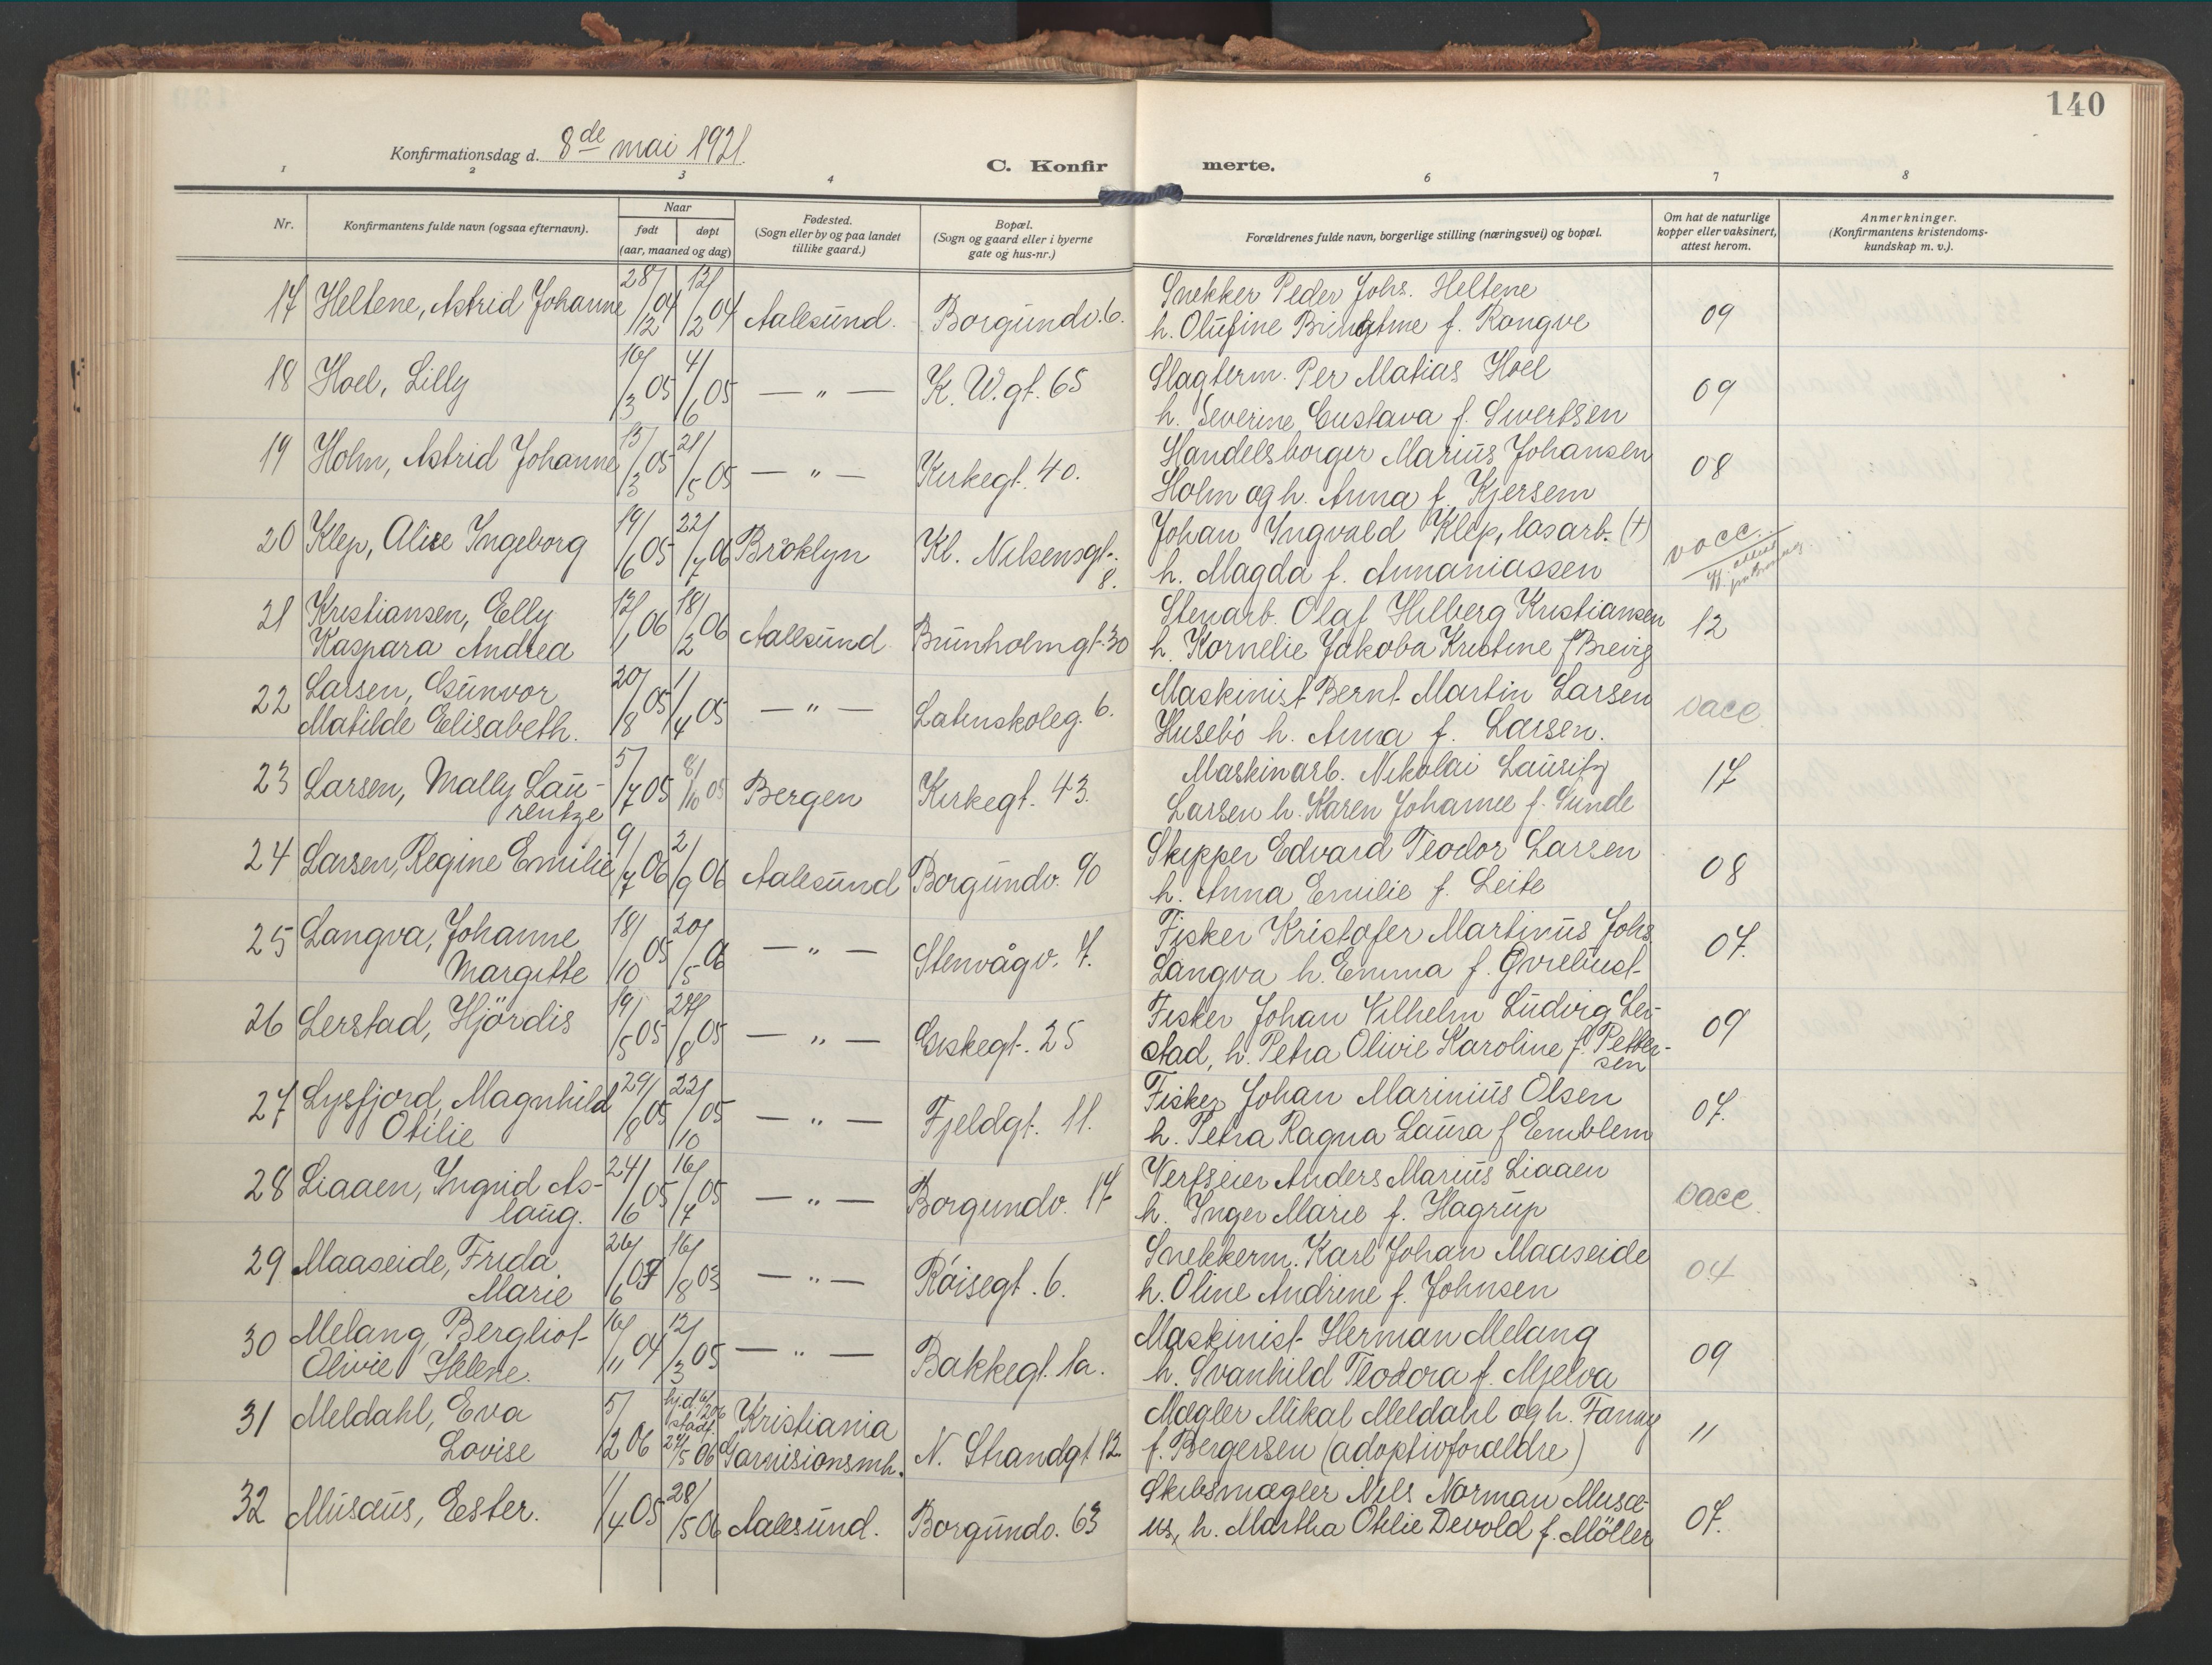 140
Konfirmationsdag d. 8de mai 1921.
C. Konfirmerte.
1 2 3 4 6 7 8
Nr.
Konfirmantens fulde navn (ogsaa efternavn).
Naar
født døpt
(aar, maaned og dag)
Fødested.
(Sogn eller by og paa landet
tillike gaard.)
Bopæl.
(Sogn og gaard eller i byerne
gate og hus-nr.)
Forældrenes fulde navn, borgerlige stilling (næringsvei) og bopæl.
Om hat de naturlige
kopper eller vaksinert,
attest herom.
Anmerkninger.
(Konfirmantens kristendoms-
kundskap m. v.).
17 Heltene, Astrid Johanne 28/12 04 12/2 04 Aalesund. Borgundv. 6. Snekker Peder Johs. Heltene 09
h. Olufine f. Rongve
18 Hoel, Lilly 16/3 05 4/6 05 — " — K. W. gt. 65 Slagterm. Per Matias Hoel 09
h. Severine Gustava f. Sivertsen
19 Holm, Astrid Johanne 15/3 05 21/5 05 — " — Kirkegt. 40. Handelsborger Marius Johansen 08
Holm og h. Anna f. Kjersem
20 Klep, Alice Ingeborg 19/6 05 22/7 06 Bröklyn Kl. Nilsensgt. 8. Johan Ingvald Klep, løsarb. (†) vacc.
h. Magda f. Annaniassen
21 Kristiansen, Elly 12/1 06 18/2 06 Aallsund Bunholmgt. 30 Stenarb. Olaf Hilberg Kristiansen 12
Kaspara Andrea h. Kornelie Jakoba Kristine f Breivig
22 Larsen, Gunvor 20/8 05 1/4 05 — " — Latinskoleg. 6. Maskinist Bernt Martin Larsen vacc.
Matilde Elisabeth. Husebö h. Anna f. Larsen.
23 Larsen, Mally Lau- 5/7 05 8/10 05 Bergen Kirkegt. 43. Maskinarb. Nikolai Lauritz 17
rentze Larsen h. Karen Johanne f. Sunde
24 Larsen, Regine Emilie 9/7 06 2/9 06 Aalesund Borgundv. 90 Skipper Edvard Teodor Larsen 08
h. Anna Emilie f. Leite
25 Langva, Johanne 18/10 05 20/5 06 — " — Stenvågv. 7. Fisker Kristofer Martinus Johs. 07.
Margitte Langva h. Emma f. Gvrebust
26 Lerstad, Hjördis 19/5 05 27/8 05 — " — Giskegt. 25 Fisker Johan Vilhelm Ludvig Ler- 09
stad, h. Petra Olivie Karoline f. Petter-
sen
27 Lysfjord, Magnhild 29/8 05 22/10 05 — " — Fjeldgt. 11. Fisker Johan Marinius Olsen 07.
Otilie h. Petra Ragna Laura f Emblem
28 Liaaen, Ingrid As- 24/6 05 16/7 05 — " — Borgundv. 17 Verfseier Anders Marius Liaaen vacc.
laug. h. Inger Marie f. Hagrup
29 Maaseide, Frida 26/6 16/8 03 — " — Röisegt. 6. Snekkerm. Karl Johan Maaseide 04
Marie h. Oline Andrine f. Johnsen
30 Melang, Bergliot 16/11 04 12/3 05 — " — Bakkegt. 1a. Maskinist Herman Melang 09
Olivie Helene. h. Svanhild Teodora f. Mjelva
31 Meldahl, Eva 5/2 06 hj.d. 6/2 06 Kristiania N. Strandgt. 12. Mægler Mikal Meldahl og h. Fanny 11
Lovise stadf. 27/5 06 Garnisionsmh. f. Bergersen (adoptivforældre)
32 Musæus, Ester. 1/4 05 28/5 06 Aalesund. Borgundv. 63 Skibsmægler Nils Norman Musæ- 07.
us, h. Martha Otilie Devold f. Möller